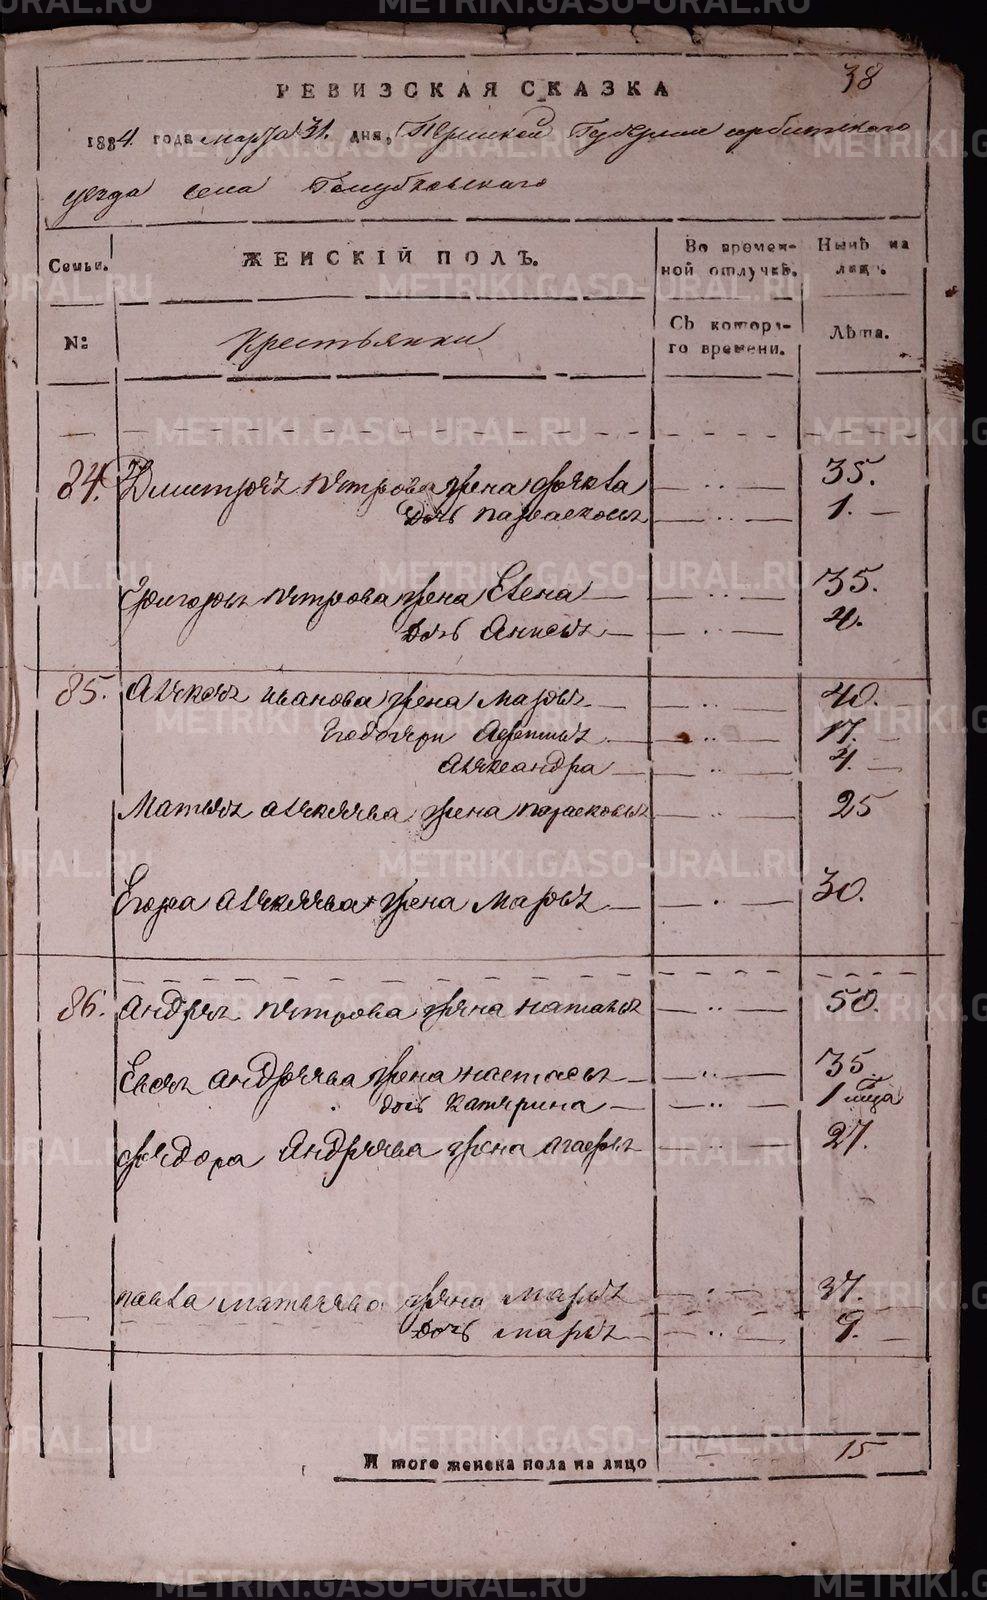 38
РЕВИЗСКАЯ СКАЗКА
1834 года марта 31. дня, Пермской Губернии ирбитского
уезда села Голубковского
Семьи.
ЖЕНСКІЙ ПОЛЪ.
Во времен-
ной отлучкѣ.
Нынѣ на
лицо.
№:
Крестьянки
Съ котора-
го времени.
Лѣта.
84. Дмитрея петрова жена фекла — .. — 35.
дочь парасковья — .. — 1. —
Григорья петрова жена Елена — .. — 35.
дочь Анисья — .. — 4.
85. Алексея иванова жена Марья — .. — 40.
17. —
Александра — .. — 4. —
Матвея алексеева жена парасковья 25
Егора алексеева жена Марья — . — 30.
86. Андрея петрова жена наталья — .. — 50.
Евсея андреева жена настасья — .. — 35
дочь катерина — .. — 1
федора Андреева жена агафья — .. — 27.
павла матвеева жена Марья — . — 37.
дочь марья — .. — 9.
И того женска пола на лицо 15
METRIKI.GASO-URAL.RU